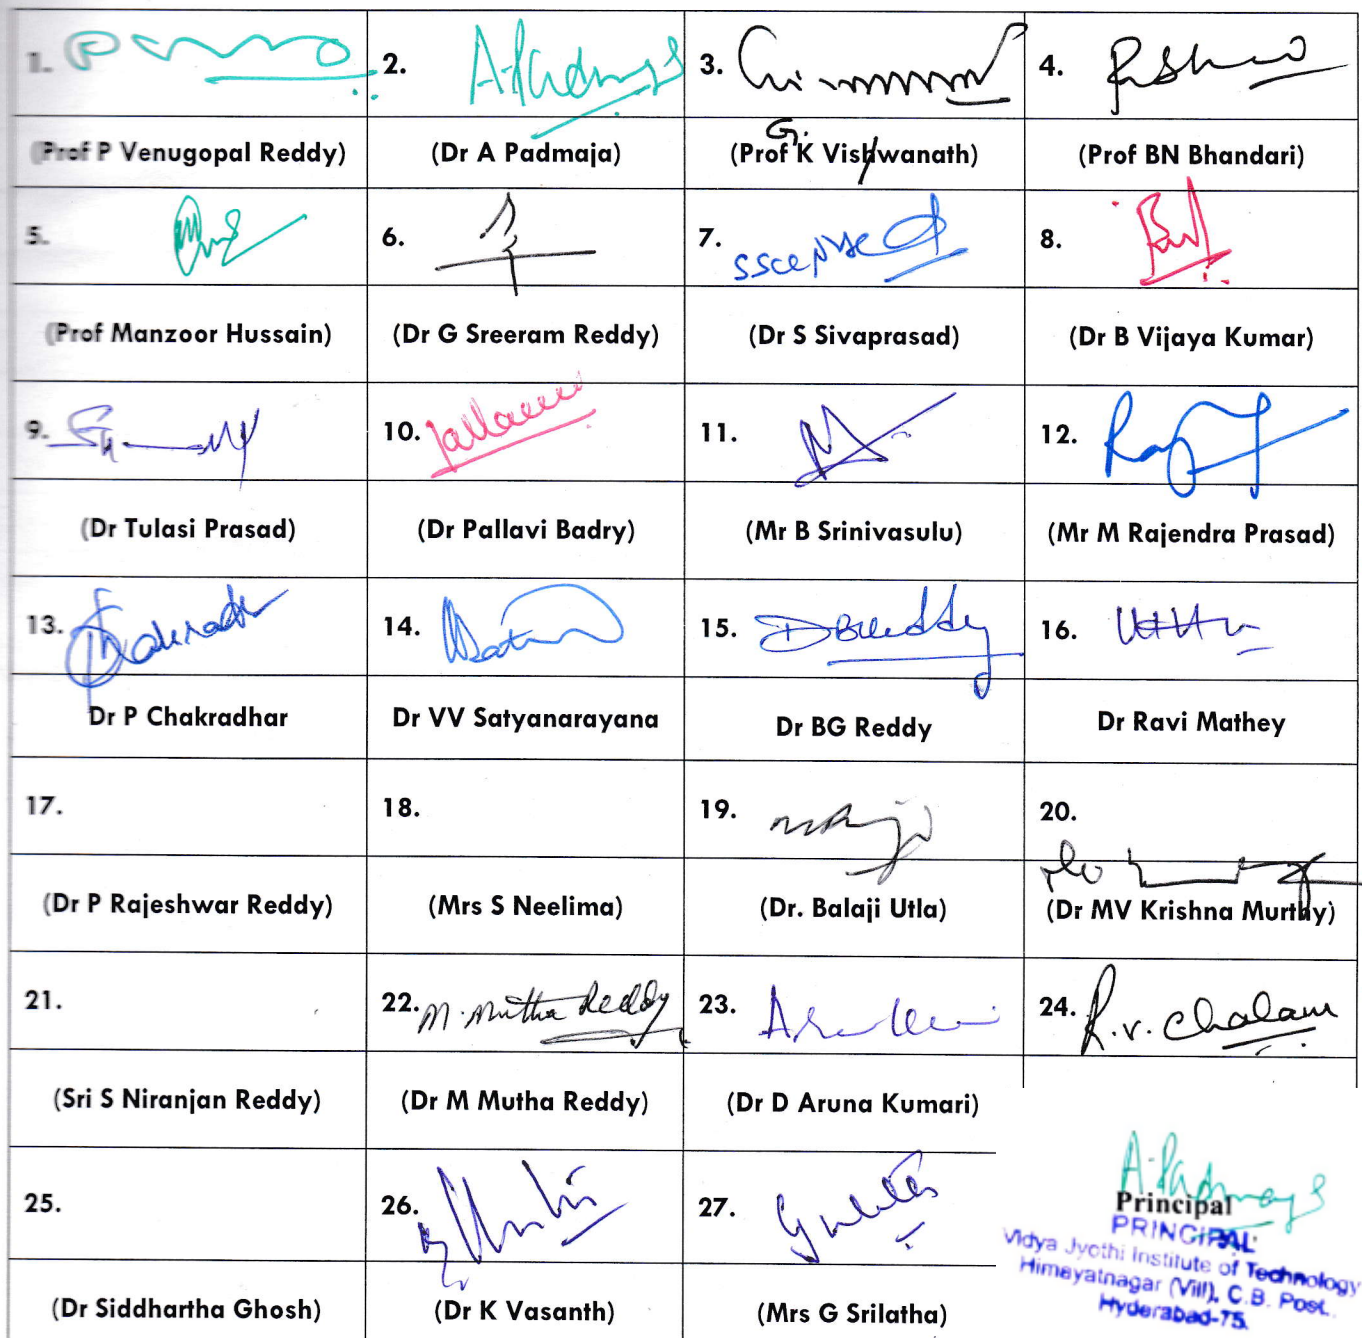 1. 2. A. Padmaja 3. 4.
(Prof P Venugopal Reddy) (Dr A Padmaja) (Prof G. K Vishwanath) (Prof BN Bhandari)
5. 6. 7. 8.
(Prof Manzoor Hussain) (Dr G Sreeram Reddy) (Dr S Sivaprasad) (Dr B Vijaya Kumar)
9. 10. 11. 12.
(Dr Tulasi Prasad) (Dr Pallavi Badry) (Mr B Srinivasulu) (Mr M Rajendra Prasad)
13. 14. 15. 16.
Dr P Chakradhar Dr VV Satyanarayana Dr BG Reddy Dr Ravi Mathey
17. 18. 19. 20.
(Dr P Rajeshwar Reddy) (Mrs S Neelima) (Dr. Balaji Utla) (Dr MV Krishna Murthy)
21. 22. M. Mutha Reddy 23. 24. R.V. Chalam
(Sri S Niranjan Reddy) (Dr M Mutha Reddy) (Dr D Aruna Kumari)
25. 26. 27.
(Dr Siddhartha Ghosh) (Dr K Vasanth) (Mrs G Srilatha)
A. Padmaja
Principal
PRINCIPAL
Vidya Jyothi Institute of Technology
Himayatnagar (Vill), C.B. Post.
Hyderabad-75.